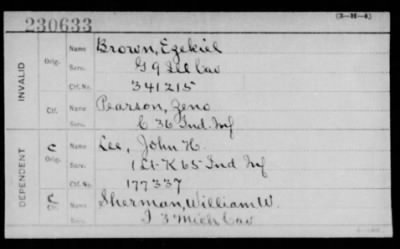 (3-H-4)
230633
INVALID
Orig. Name Brown, Ezekiel
Serv. G 9 Ill Cav
Ctf. No. 341215
Ctf. Name Pearson, Zeno
Serv. C 36 Ind. Inf
DEPENDENT
C Orig. Name Lee, John H.
Serv. 1 Lt. K 65 Ind Inf
Ctf. No. 177337
C Ctf. Name Sherman, William W.
Serv. I 3 Mich Cav